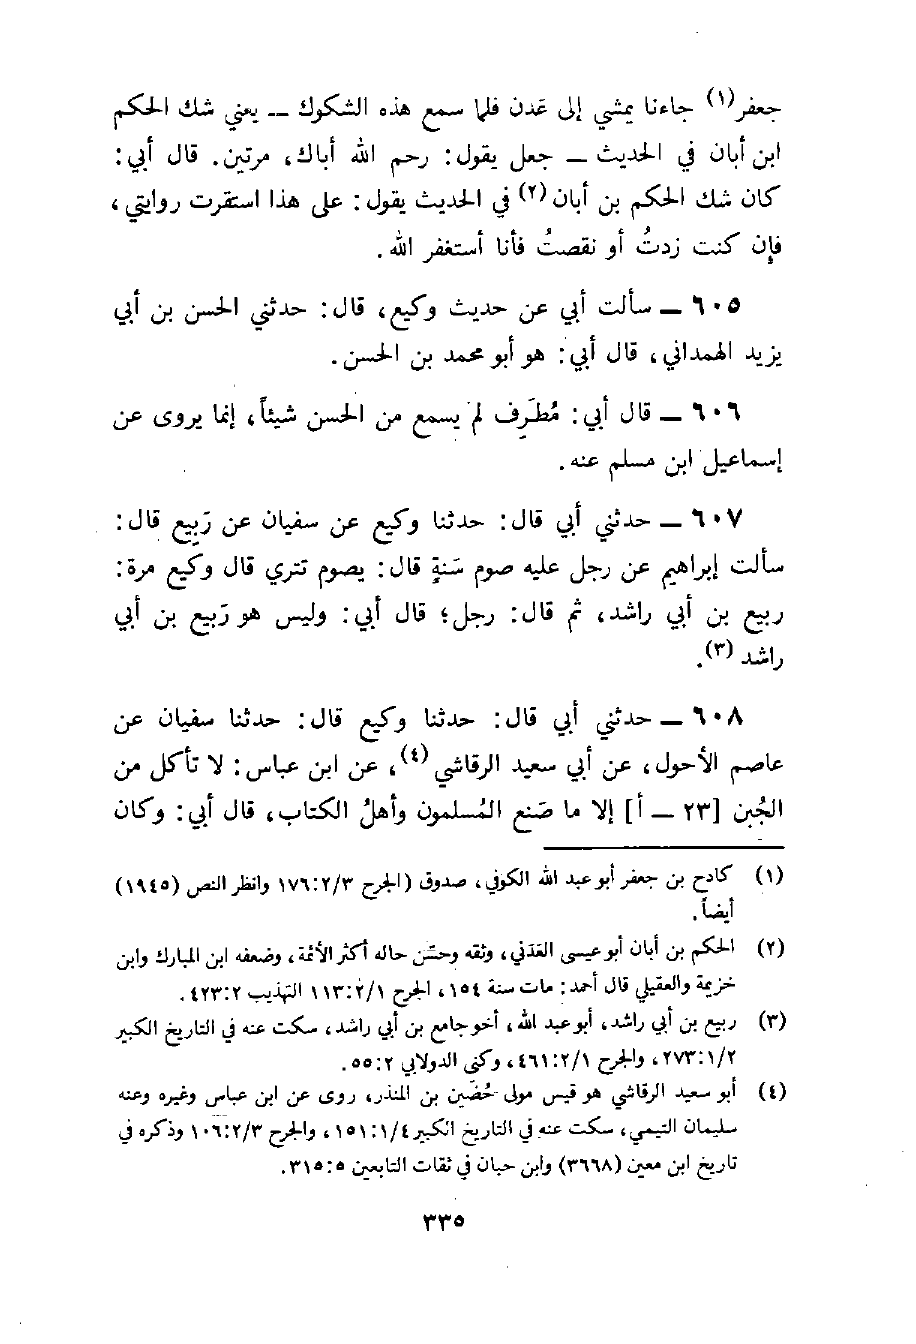 جعفر(١) جاءنا يمشي إلى عَدن فلما سمع هذه الشكوك — يعني شك الحكم
ابن أبان في الحديث — جعل يقول: رحم الله أباك، مرتين. قال أبي:
كان شك الحكم بن أبان(٢) في الحديث يقول: على هذا استقرت روايتي،
فإن كنت زدتُ أو نقصتُ فأنا أستغفر الله.
٦٠٥ — سألت أبي عن حديث وكيع، قال: حدثني الحسن بن أبي
يزيد الهمداني، قال أبي: هو أبو محمد بن الحسن.
٦٠٦ — قال أبي: مُطَرِف لم يسمع من الحسن شيئاً، إنما يروى عن
إسماعيل ابن مسلم عنه.
٦٠٧ — حدثني أبي قال: حدثنا وكيع عن سفيان عن رَبِيع قال:
سألت إبراهيم عن رجل عليه صوم سَنةٍ قال: يصوم تتري قال وكيع مرة:
ربيع بن أبي راشد، ثم قال: رجل؛ قال أبي: وليس هو رَبيع بن أبي
راشد(٣).
٦٠٨ — حدثني أبي قال: حدثنا وكيع قال: حدثنا سفيان عن
عاصم الأحول، عن أبي سعيد الرقاشي(٤)، عن ابن عباس: لا تأكل من
الجُبن [٢٣ — أ] إلا ما صَنع المُسلمون وأهلُ الكتاب، قال أبي: وكان
(١) كادح بن جعفر أبو عبد الله الكوفي، صدوق (الجرح ١٧٦:٢/٣ وانظر النص (١٩٤٥)
أيضاً.
(٢) الحكم بن أبان أبو عيسى العَدَني، وثقه وحسّن حاله أكثر الأئمة، وضعفه ابن المبارك وابن
خزيمة والعقيلي قال أحمد: مات سنة ١٥٤، الجرح ١١٣:٢/١ التهذيب ٤٢٣:٢.
(٣) ربيع بن أبي راشد، أبو عبد الله، أخو جامع بن أبي راشد، سكت عنه في التاريخ الكبير
٢٧٣:١/٢، والجرح ٤٦١:٢/١، وكنى الدولابي ٥٥:٢.
(٤) أبو سعيد الرقاشي هو قيس مولى حُضَين بن المنذر، روى عن ابن عباس وغيره وعنه
سليمان التيمي، سكت عنه في التاريخ الكبير ١٥١:١/٤، والجرح ١٠٦:٢/٣ وذكره في
تاريخ ابن معين (٣٦٦٨) وابن حبان في ثقات التابعين ٣١٥:٥.
٣٣٥